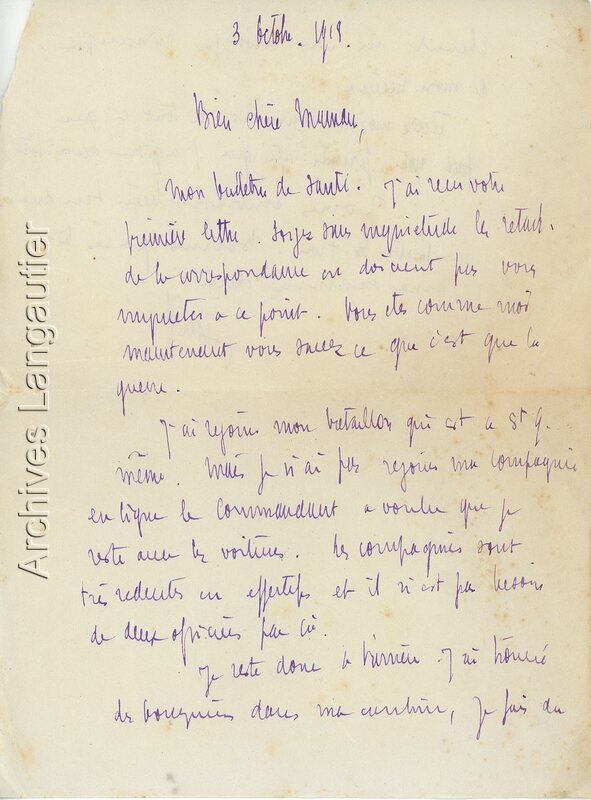 3 Octobre. 1918.
Bien chère Maman,
Mon bulletin de santé. J'ai reçu votre
première lettre. Soyez sans inquiétude les retards
de la correspondance ne doivent pas vous
inquieter a ce point. Vous etes comme moi
maintenant vous savez ce que c'est que la
guerre.
J'ai rejoins mon bataillon qui est a St Q.
même. Mais je n'ai pas rejoins ma compagnie
en ligne le commandant a voulu que je
reste avec les voitures. Les compagnies sont
très reduites en effectifs et il n'est pas besoin
de deux officiers par Cie.
Je reste donc a l'arrière. J'ai trouvé
des bouquins dans ma cantine, je fais du
Archives Langautier